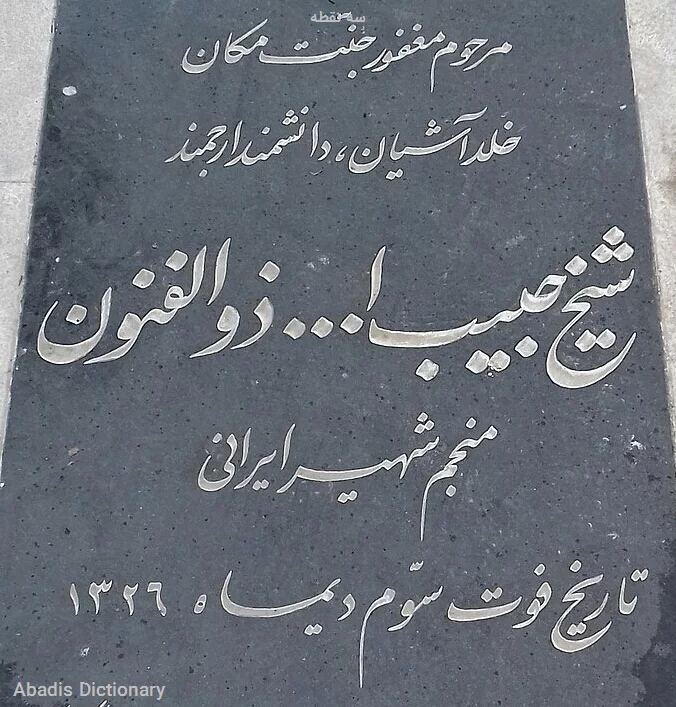 سه نقطه
مرحوم مغفور جنت مکان
خلد آشیان، دانشمند ارجمند
شیخ حبیب ا... ذوالفنون
منجم شهیر ایرانی
تاریخ فوت سوّم دیماه ۱۳۲۶
Abadis Dictionary